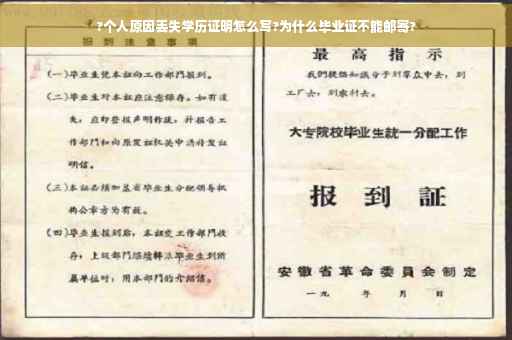 ?个人原因丢失学历证明怎么写?为什么毕业证不能邮寄?
报到注意事项
(一)毕业生凭本证向工作部门报到。
(二)毕业生对本证应注意保存。如有遗
失,应即登报声明作废,并报告工
作部门和向原发证机关申请补发证
明信。
(三)本证必须加盖省毕业生分配领导机
构公章方为有效。
(四)毕业生报到后,本证交工作部门收
存,上级部门继续转派毕业生到所
属单位时,用本部门的介绍信。
最高指示
我們提倡知识分子到羣众中去,到
工厂去,到农村去。
大专院校毕业生統一分配工作
报到証
安徽省革命委員会制定
一九 年 月 日